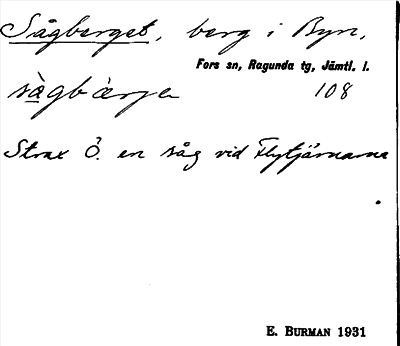 Sågberget, berg i Byn,
Fors sn, Ragunda tg, Jämtl. l.
sågbärje 108
Strax Ö. en såg vid Flytjärnarna.
E. BURMAN 1931